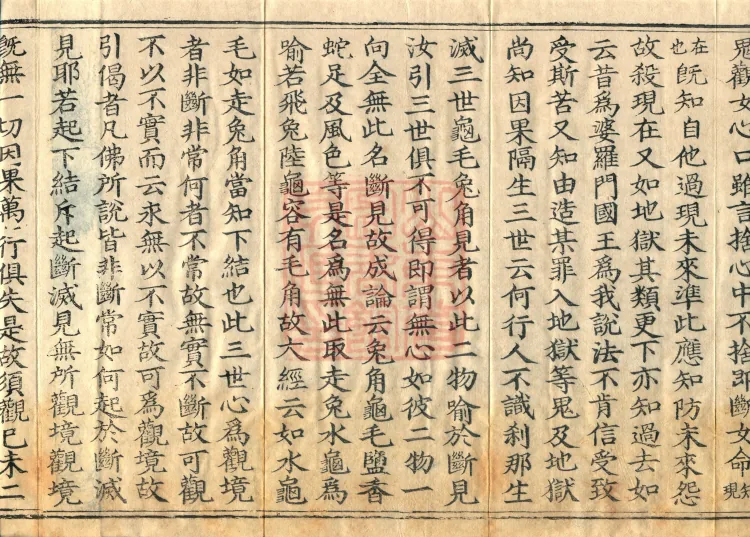 鬼觀汝心口雖言捨心中不捨即斷汝命現知
在也既知自他過現未來準此應知防未來怨
故殺現在又如地獄其類更下亦知過去如
云昔為婆羅門國王為我說法不肯信受致
受斯苦又知由造某罪入地獄等鬼及地獄
尚知因果隔生三世云何行人不識剎那生
滅三世龜毛兔角見者以此二物喻於斷見
汝引三世俱不可得即謂無心如彼二物一
向全無此名斷見故成論云兔角龜毛鹽香
蛇足及風色等是名為無此取走兔水龜為
喻若飛兔陸龜容有毛角故大經云如水龜
毛如走兔角當知下結也此三世心為觀境
者非斷非常何者不常故無實不斷故可觀
不以不實而云求無以不實故可為觀境故
引偈者凡佛所說皆非斷常如何起於斷滅
見耶若起下結斥起斷滅見無所觀境觀境
既無一切因果萬行俱失是故須觀已未二